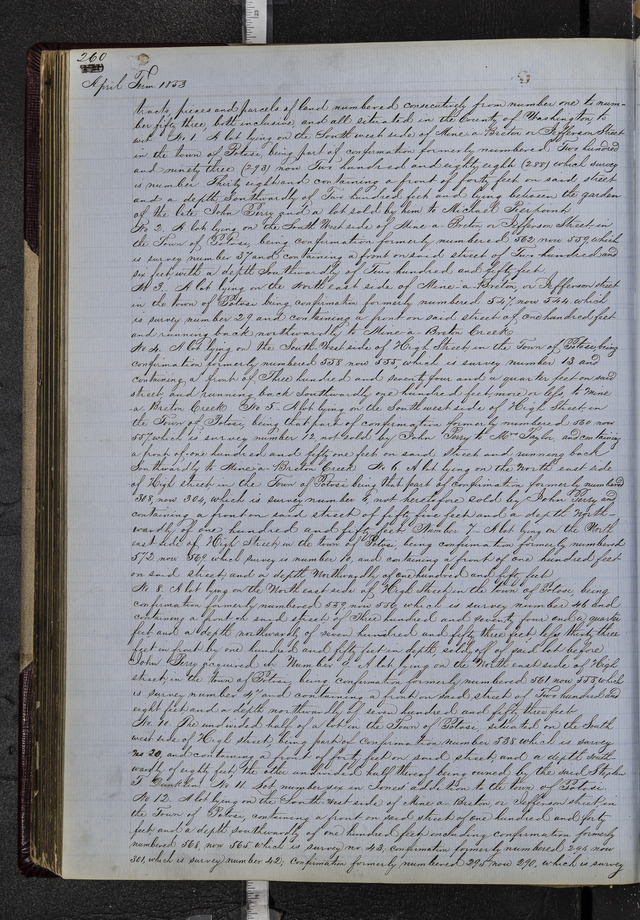 260
April Term 1853
tracts, pieces and parcels of land numbered consecutively from number one to num-
ber fifty three, both inclusive, and all situated in the County of Washington to
wit No 1. A lot lying on the South west side of Mine a Breton or Jefferson Street
in the town of Potosi, being part of confirmation formerly numbered Two hundred
and ninety three (293) now Two hundred and eighty eight (288) which survey
is number Thirty eight and containing a front of forty feet on said street
and a depth Southwardly of Two hundred feet and lying between the garden
of the late John Perry and a lot sold by him to Michael Pierpont
No 2. A lot lying on the South West side of Mine a Breton or Jefferson Street in
the Town of Potosi, being confirmation formerly numbered 562 now 559, which
is survey number 37 and containing a front on said street of Two hundred and
six feet with a depth Southwardly of Two hundred and fifty feet
No 3. A lot lying on the North east side of Mine a Breton, or Jefferson street
in the town of Potosi being confirmation formerly numbered 547 now 544 which
is survey number 29 and containing a front on said street of one hundred feet
and running back northwardly to Mine a Breton Creek
No 4. A lot lying on the South West side of High Street in the Town of Potosi, being
confirmation formerly numbered 558 now 555 which is survey number 13 and
containing a front of Three hundred and seventy four and a quarter feet on said
street and running back Southwardly one hundred feet more or less to Mine
a Breton Creek No 5. A lot lying on the South west side of High Street, in
the Town of Potosi, being that part of confirmation formerly numbered 560 now
557 which is survey number 12 not sold by John Perry to Mrs Taylor, and containing
a front of one hundred and fifty one feet on said street and running back
Southwardly to Mine a Breton Creek No 6. A lot lying on the North east side
of High street in the Town of Potosi being that part of confirmation formerly numbered
308, now 304, which is survey number not heretofore sold by John Perry and
containing a front on said street of fifty five feet and a depth North-
wardly of one hundred and fifty feet Number 7. A lot lying on the North
east side of High Street, in the town of Potosi, being confirmation formerly numbered
572 now 569 which survey is number 10, and containing a front of one hundred feet
on said street, and a depth Northwardly of one hundred and fifty feet
No 8. A lot lying on the North east side of High Street, in the town of Potosi, being
confirmation formerly numbered 559 now 556 which is survey number 46 and
containing a front on said street of Three hundred and seventy four and a quarter
feet and a depth northwardly of nine hundred and fifty three feet, less thirty three
feet in front by one hundred and fifty feet in depth, sold off of said lot before
John Perry acquired it Number 9. A lot lying on the North east side of High
street, in the town of Potosi, being confirmation formerly numbered 561 now 558 which
is survey number 47 and containing a front on said street of Two hundred and
eight feet and a depth northwardly of seven hundred and fifty three feet
No 10. The undivided half of a lot in the Town of Potosi, situated on the South
west side of High street, being part of confirmation number 538 which is survey
no 20, and containing a front of forty feet on said street, and a depth South
wardly of eighty feet, the other undivided half thereof being owned by the said Stephen
F. Dunklin No 11. Lot number six in Jones' addition to the town of Potosi
No 12. A lot lying on the South West side of Mine a Breton or Jefferson street, in
the Town of Potosi, containing a front on said street of one hundred and forty
feet and a depth southwardly of one hundred feet including confirmation formerly
numbered 568, now 565 which is survey no 43, confirmation formerly numbered 294 now
301, which is survey number 42; confirmation formerly numbered 295 now 290, which is survey